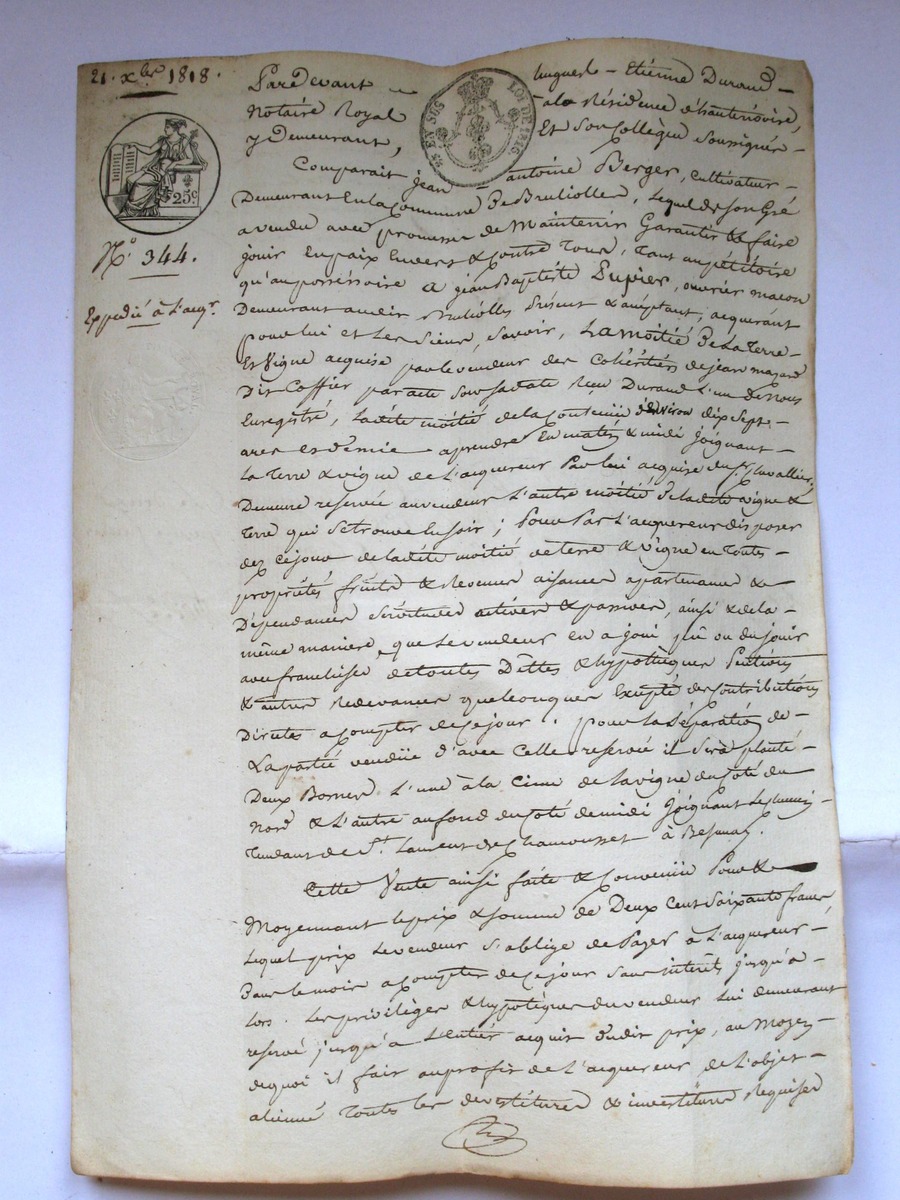 21. xbre 1818.
25c
N° 344.
Expedié à l'acqr
25 EN SUS LOI DE 1816
Pardevant hugues - Etiénne Durand -
Notaire Royal à la Résidence d'hauterivoire,
y Demeurant, Et Son Collègue Soussignés -
Comparait jean - antoine Berger, cultivateur -
Demeurant En la Commune De Brulliolle, lequel de Son Gré
a vendu avec promesse de Maintenir Garantir & faire
jouir En paix Envers & Contre Tous, Tant au pétitoire
qu'au possessoire a jean Baptiste Dupier, ouvrier macon
Demeurant audit Brulliolles Présent & acceptant, acquérant
pour lui et les Siens, Savoir, La moitié De la Terre -
Et Vigne acquise par le vendeur des Cohéritiers de jean
Dit Coffier par acte Sous Sa date Reçu Durand l'un de Nous
Enregistré, Ladite moitié de la Contenue d'Environ dix Sept -
ares & demie a prendre En matin & midi joignant -
La Terre & vigne de l'acquereur Par lui acquise du Sr. Chavallier,
Demeure reservée au vendeur l'autre moitié De ladite vigne &
Terre qui Se trouve le soir ; Pour Par l'acquereur disposer
dez ce jour de ladite moitié de terre & Vigne en Toutes -
propriétés fruits & Revenus aisances apartenances &
Dépendances Servitudes actives & passives, ainsi & de la -
même maniere que le vendeur en a joui pû ou dû jouir
avec franchise de toutes Dettes & hypothèques Pentions
& autres Redevances quelconques Excepté des Contributions
Directes a Compter de ce jour. pour la Séparation de -
La partie vendue d'avec Celle reservée il Sera planté -
Deux Bornes L'une à la Cime de la vigne du Coté du
Nord & L'autre au fond du Coté de midi joignant Le chemin
Tendant de St. Laurent de Chamousset à Bessenay.
Cette Vente ainsi faite & Convenue Pour &
Moyennant le prix & Somme de Deux Cent Soixante francs
Lequel prix le vendeur S'oblige de Payer à L'acquereur -
Dans le mois a Compter de Ce jour Sans interêts jusqu'a -
Lors. Les privilèges & hypotèques du vendeur lui demeurant
reservé jusqu'a L'entier acquit dudit prix, au Moyen
dequoi il fait au profit de l'acquereur, de L'objet -
aliénné Toutes les devestitures & investitures Requises